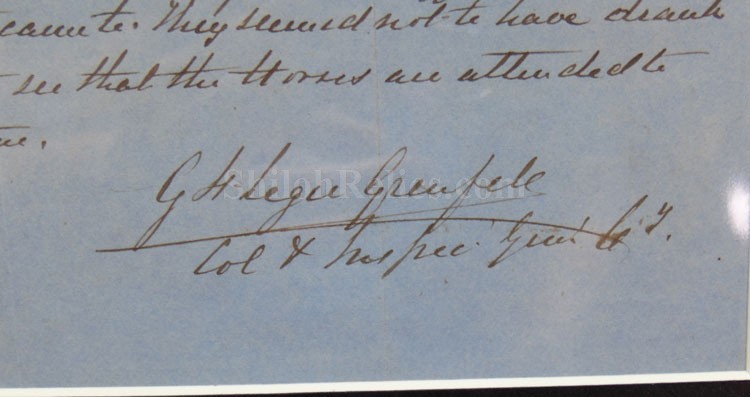 came to. They seemed not to have drank
see that the Horses are attended to
G St Leger Grenfell
ShilohRelics.com
Col & Inspec. Genl